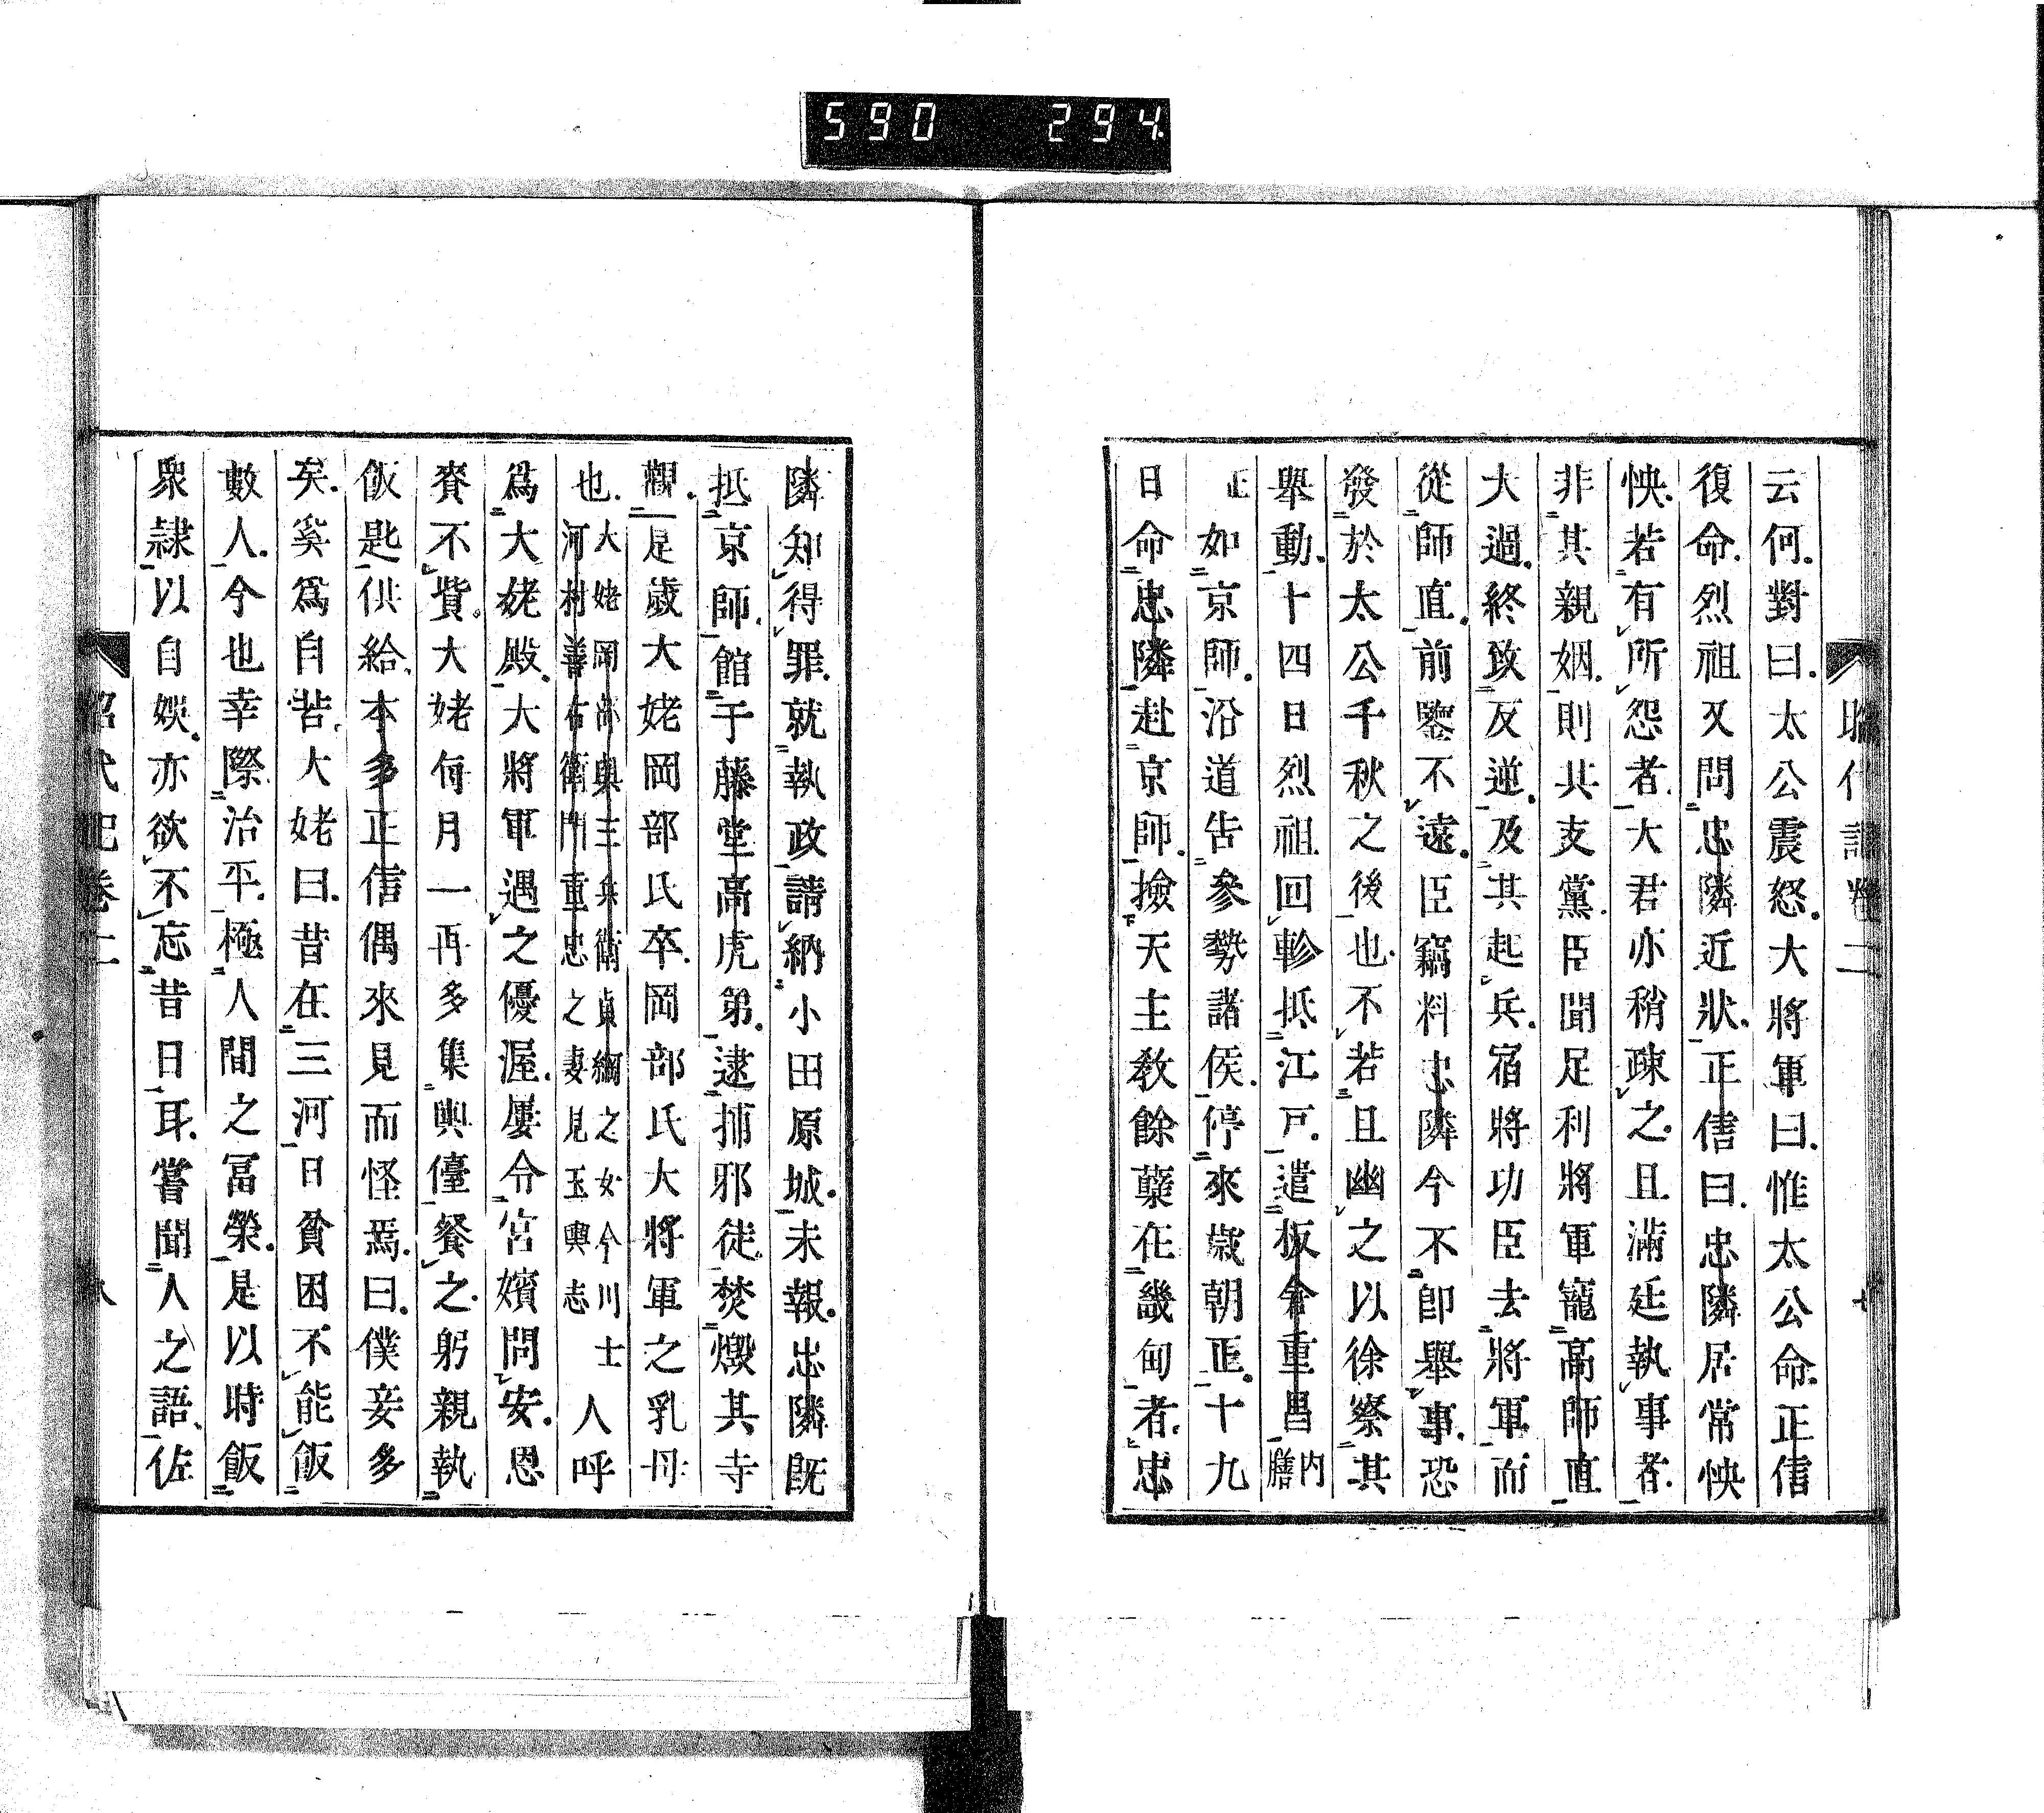 590 294
昭代記卷二 七
云何對曰太公震怒大將軍曰惟太公命正信
復命烈祖又問忠隣近狀正信曰忠隣居常怏
怏若有所怨者大君亦稍疎之且滿廷執事者
非其親姻則其支黨臣聞足利將軍寵高師直
大過終致反逆及其起兵宿將功臣去將軍而
從師直前鑒不遠臣竊料忠隣今不卽舉事恐
發於太公千秋之後也不若且幽之以徐察其
舉動十四日烈祖回軫抵江戸遣板倉重昌內膳
正如京師沿道告參勢諸侯停來歲朝正十九
日命忠隣赴京師撿天主敎餘蘖在畿甸者忠
隣知得罪就執政請納小田原城未報忠隣既
抵京師館于藤堂高虎第逮捕邪徒焚燬其寺
觀是歲大姥岡部氏卒岡部氏大將軍之乳母
也大姥岡部與三兵衛貞綱之女今川士河村善右衛門重忠之妻見玉輿志人呼
爲大姥殿大將軍遇之優渥屢令宮嬪問安恩
賚不貲大姥每月一再多集輿儓餐之躬親執
飯匙供給本多正信偶來見而怪焉曰僕妾多
矣奚爲自苦大姥曰昔在三河日貧困不能飯
數人今也幸際治平極人間之富榮是以時飯
衆隷以自娛亦欲不忘昔日耳嘗聞人之語佐
昭代記卷二 八